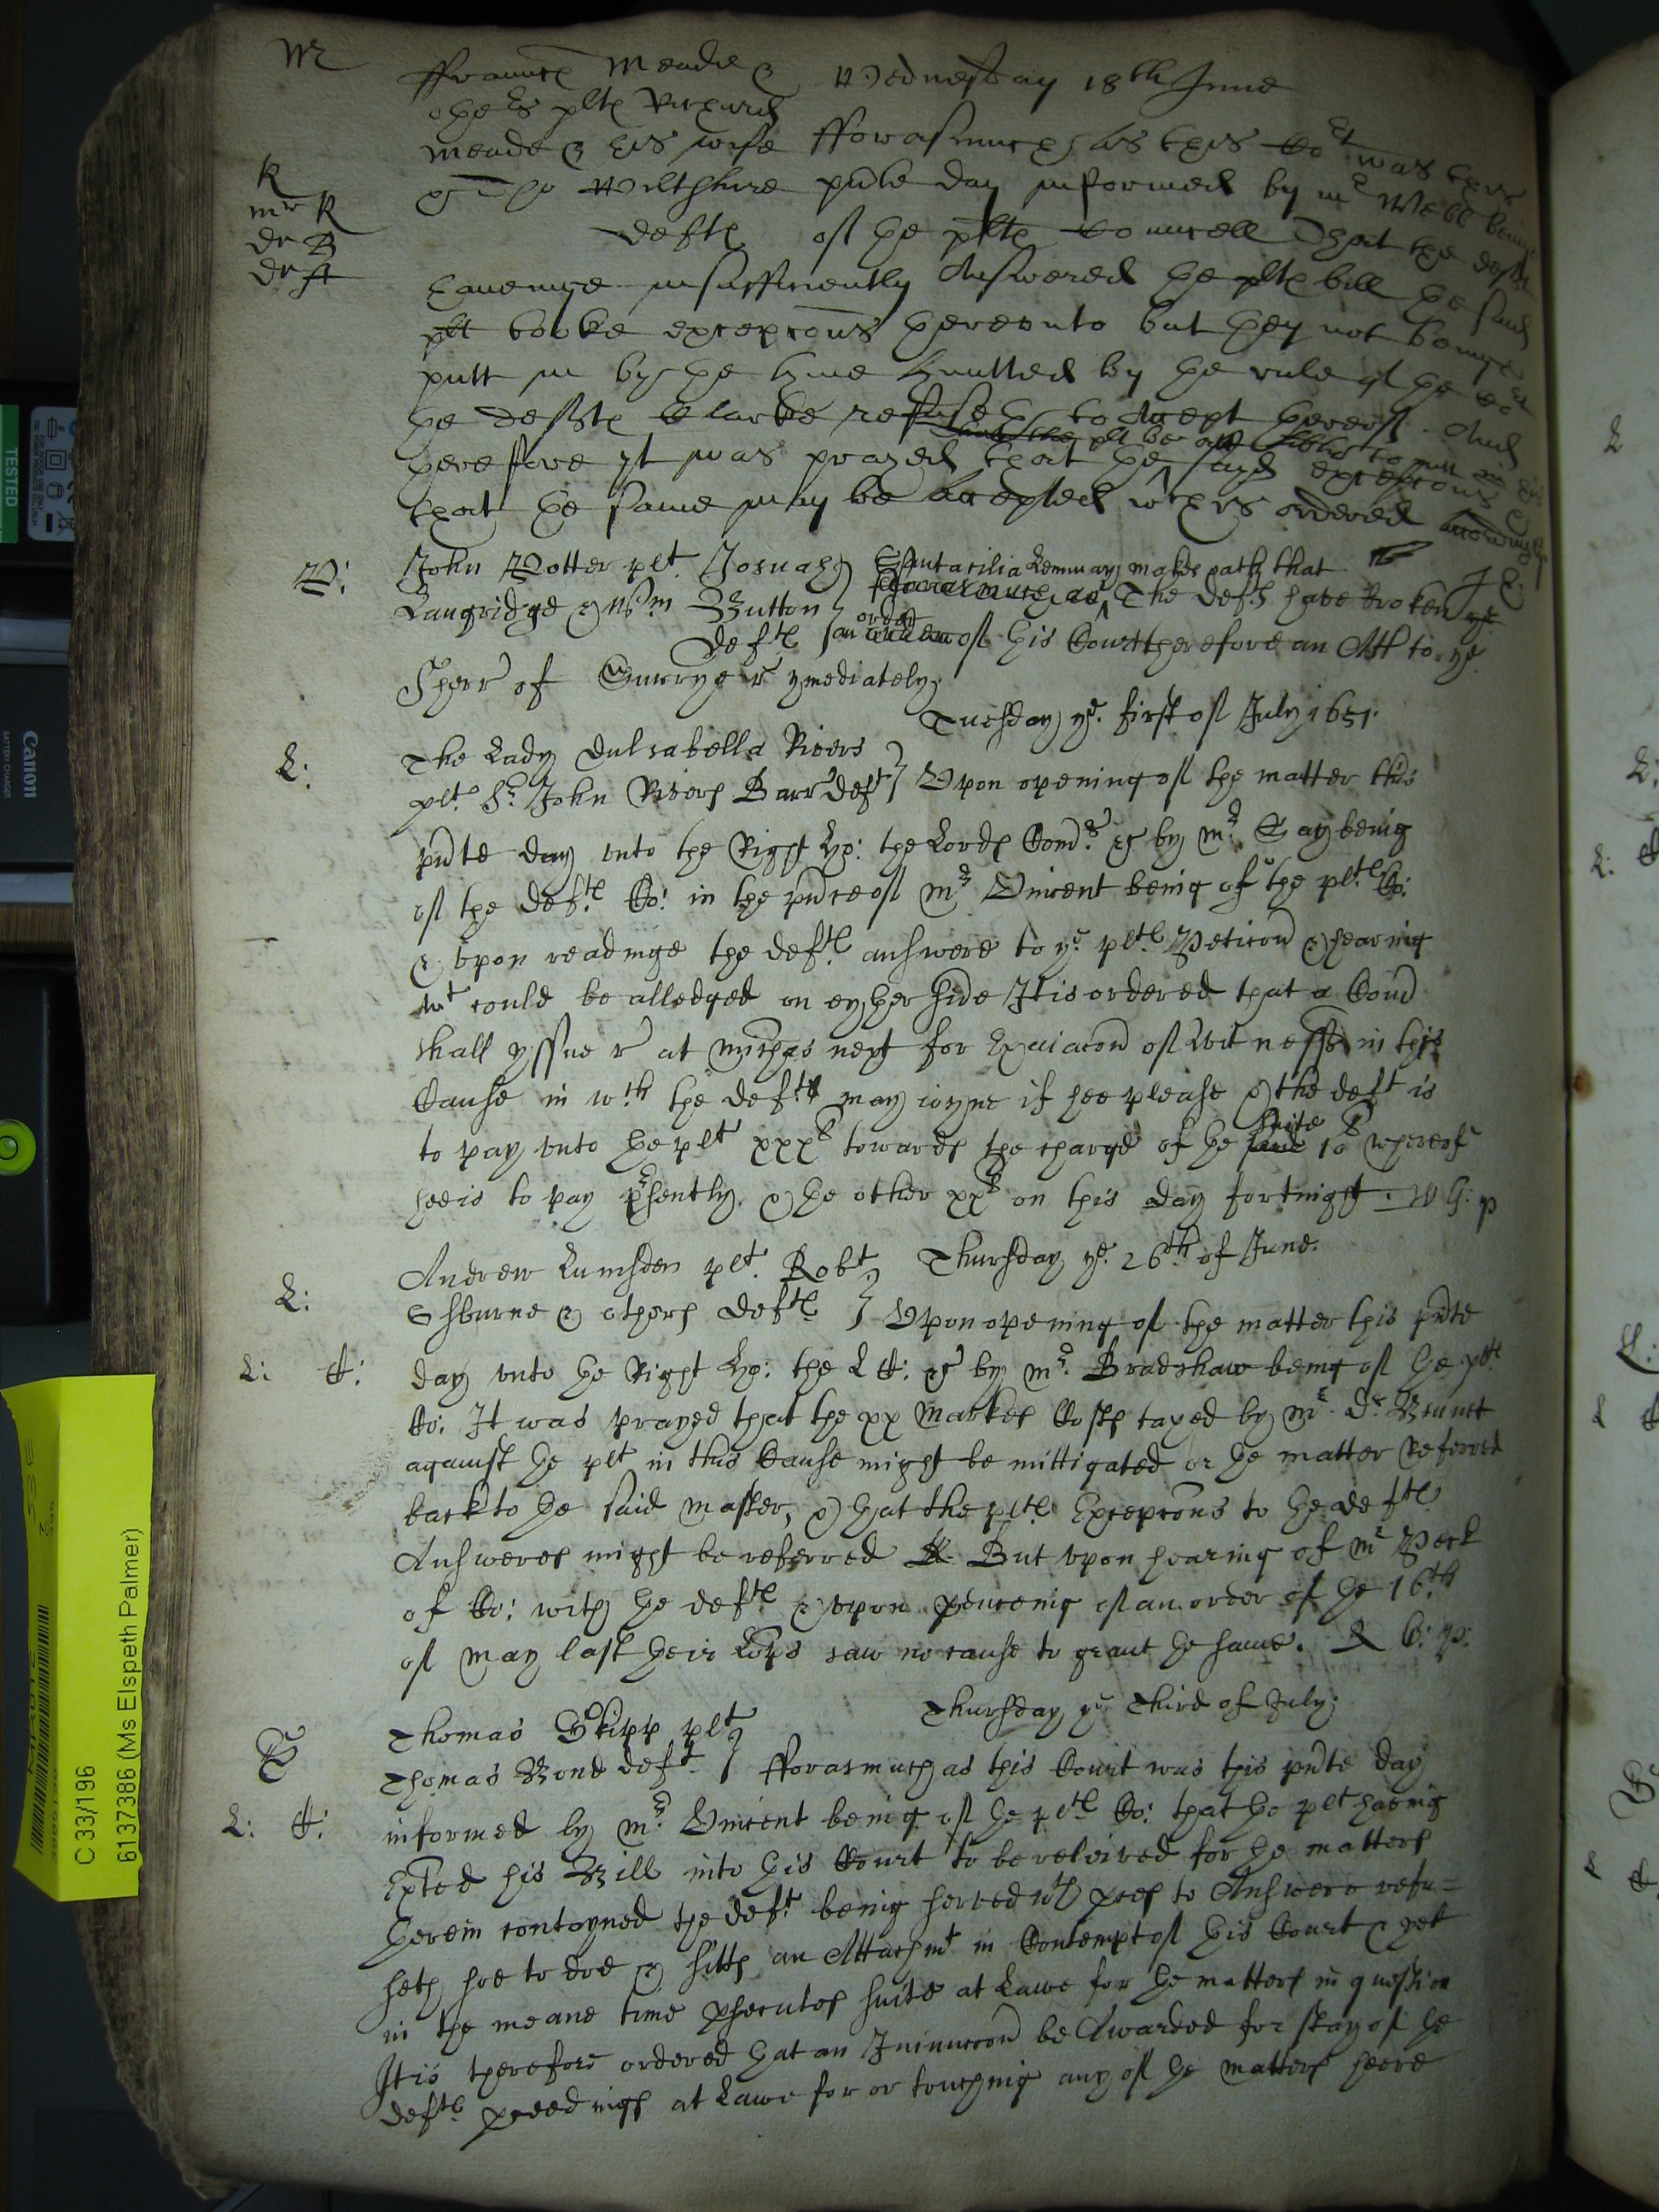 Mr
ffraunces Meade &
others plts Richard
Wednesday 18th June
meade & his wife fforasmuch as this Cot was this
Wiltshire pnte day informed by mr Webb being
defts of the plts Councell That the defts
haveinge insufficiently Answered the plts bill the said
plt tooke excepcons thereunto but they not being
putt in by the tyme limitted by the rule of the Cot
the defts Clarke refuseth to Accept thereof And
therefore yt was prayed that the sayd excepcons
that the same may be accepted wch is ordered accordingly
R
mr R
dr B
dr A
P:
John Potter plt Josuah
Langridge & Wm Button
defts
Lemmay makes oath that
The defts have broken ye
an order of this Court therefore an Att to ye
Sherr of Surrye r ymediately
Tuesday ye first of July 1651.
L:
The Lady Dulsabella Rivers
plt Sr John Rivers Barr deft Vpon opening of the matter this
pnte day vnto the Right ho: the Lords Comrs &c by mr Gay being
of the defts Co: in the pnce of mr Vincent being of the plts Co:
& vpon readinge the defts answere to ye plts Peticon & hearing
wt could be alledged on eyther side It is ordered that a Com
shall yssue r at michas next for Exaiacon of Witnesses in this
Cause in wch the deft may ioyne if hee please & the deft is
to pay vnto the plt xxxl towards the charge of the suite 10l whereof
hee is to pay presently & the other xxl on this day fortnight. W h: p
L:
Andrew Lumsden plt Robt
Thursday ye 26th of June.
Shburne & others defts Vpon opening of the matter this pnte
L: C:
day vnto the Right ho: the L C: &c by mr Bradshaw being of the plts
Co: It was prayed that the xx markes Costs taxed by mr dr Bennet
against the plt in this Cause might be mittigated or the matter Referred
back to the said master, & that the plts Excepcons to the defts
Answeres might be referred But vpon hearing of mr Peck
of Co: with the defts & vpon pruseing of an order of the 16th
of may last their Lopps saw no cause to graunt the same. R b: p:
Thursday ye Third of July
Thomas Skipp plt
Thomas Bond deft fforasmuch as this Court was this pnte day
L: C:
informed by mr Vincent being of the plts Co: that the plt having
Exted his Bill into this Court to be releived for the matters
therein contayned the deft being served wth proes to Answere refu=
seth soe to doe & sitts an Attachmt in Contempt of this Court & yet
in the meane time prsecutes suite at Lawe for the matters in question
It is therefore ordered that an Iniunccon be Awarded for stay of the
defts proceedings at Lawe for or touching any of the matters heere
C 33/196
6137386 (Ms Elspeth Palmer)
TESTED
Canon
BATTERY CHARGER